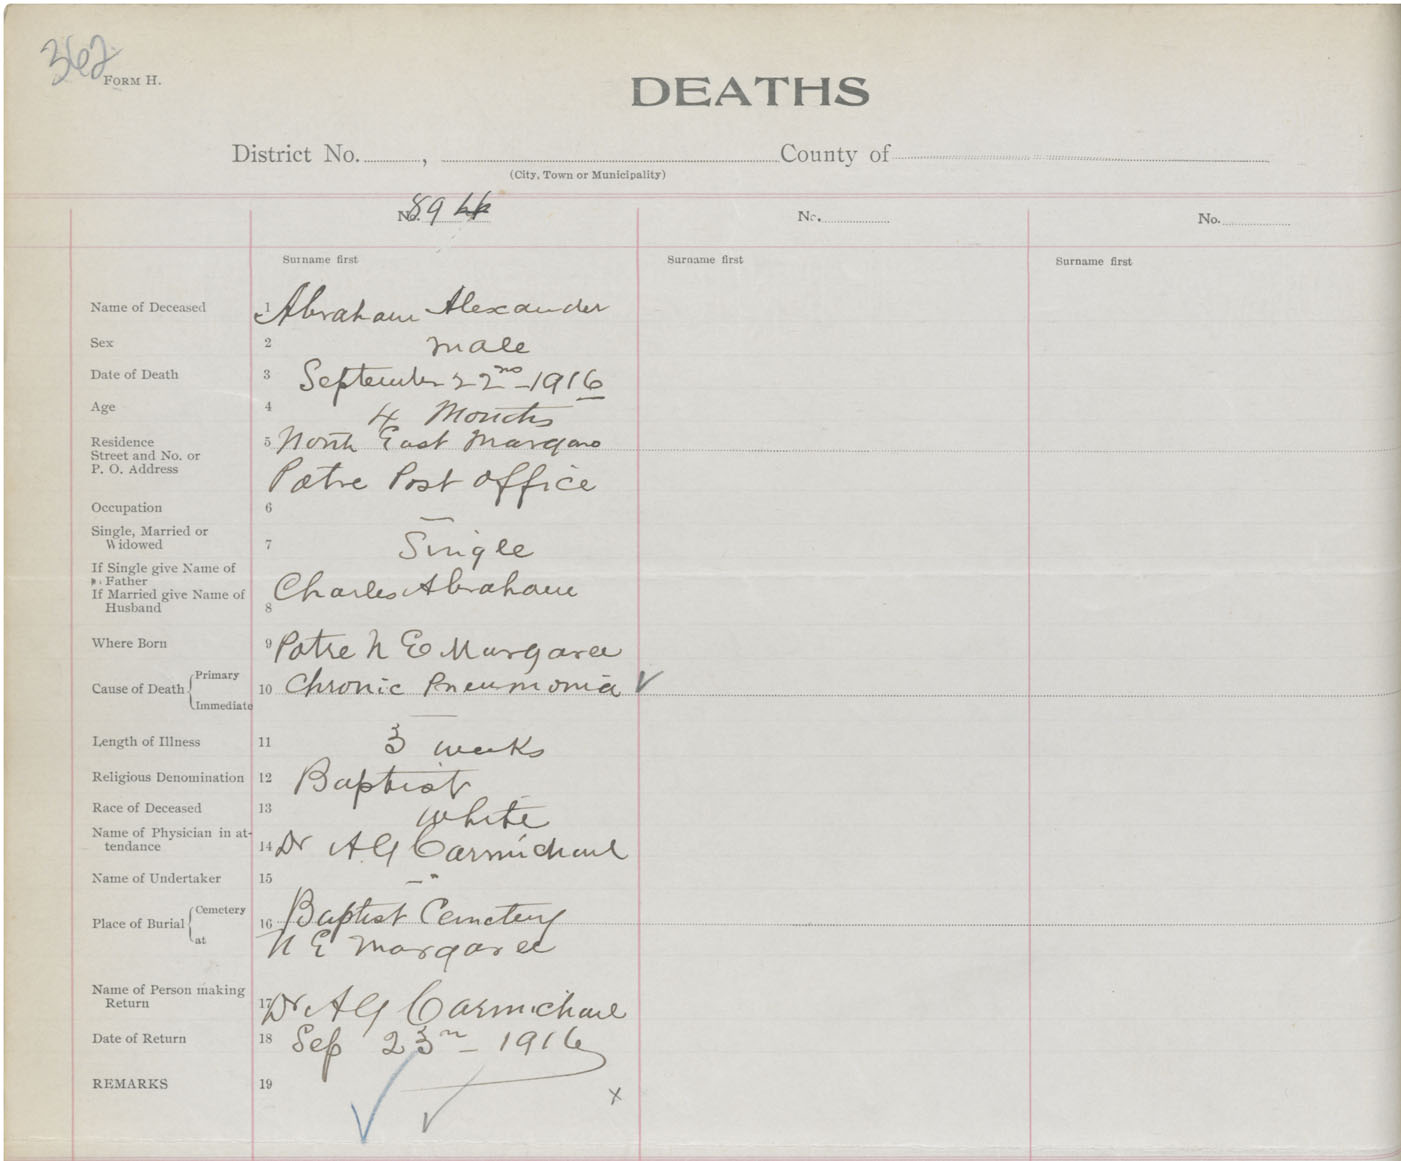 362
FORM H.
DEATHS
District No. , County of
(City, Town or Municipality)
No. 89 No. No.
Surname first Surname first Surname first
Name of Deceased 1 Abraham Alexander
Sex 2 male
Date of Death 3 September 22nd - 1916
Age 4 4 Months
Residence 5 North East Margaree
Street and No. or
P. O. Address Patre Post office
Occupation 6 —
Single, Married or
Widowed 7 Single
If Single give Name of
Father
If Married give Name of
Husband 8 Charles Abraham
Where Born 9 Patre N E Margaree
Cause of Death { Primary
10 Chronic Pneumonia ✓
Immediate —
Length of Illness 11 3 weeks
Religious Denomination 12 Baptist
Race of Deceased 13 white
Name of Physician in at-
tendance 14 Dr A G Carmichael
Name of Undertaker 15 — "
Place of Burial { Cemetery
16 Baptist Cemetery
at N E Margaree
Name of Person making
Return 17 Dr A G Carmichael
Date of Return 18 Sep 23rd - 1916
REMARKS 19
✓ ✓ x